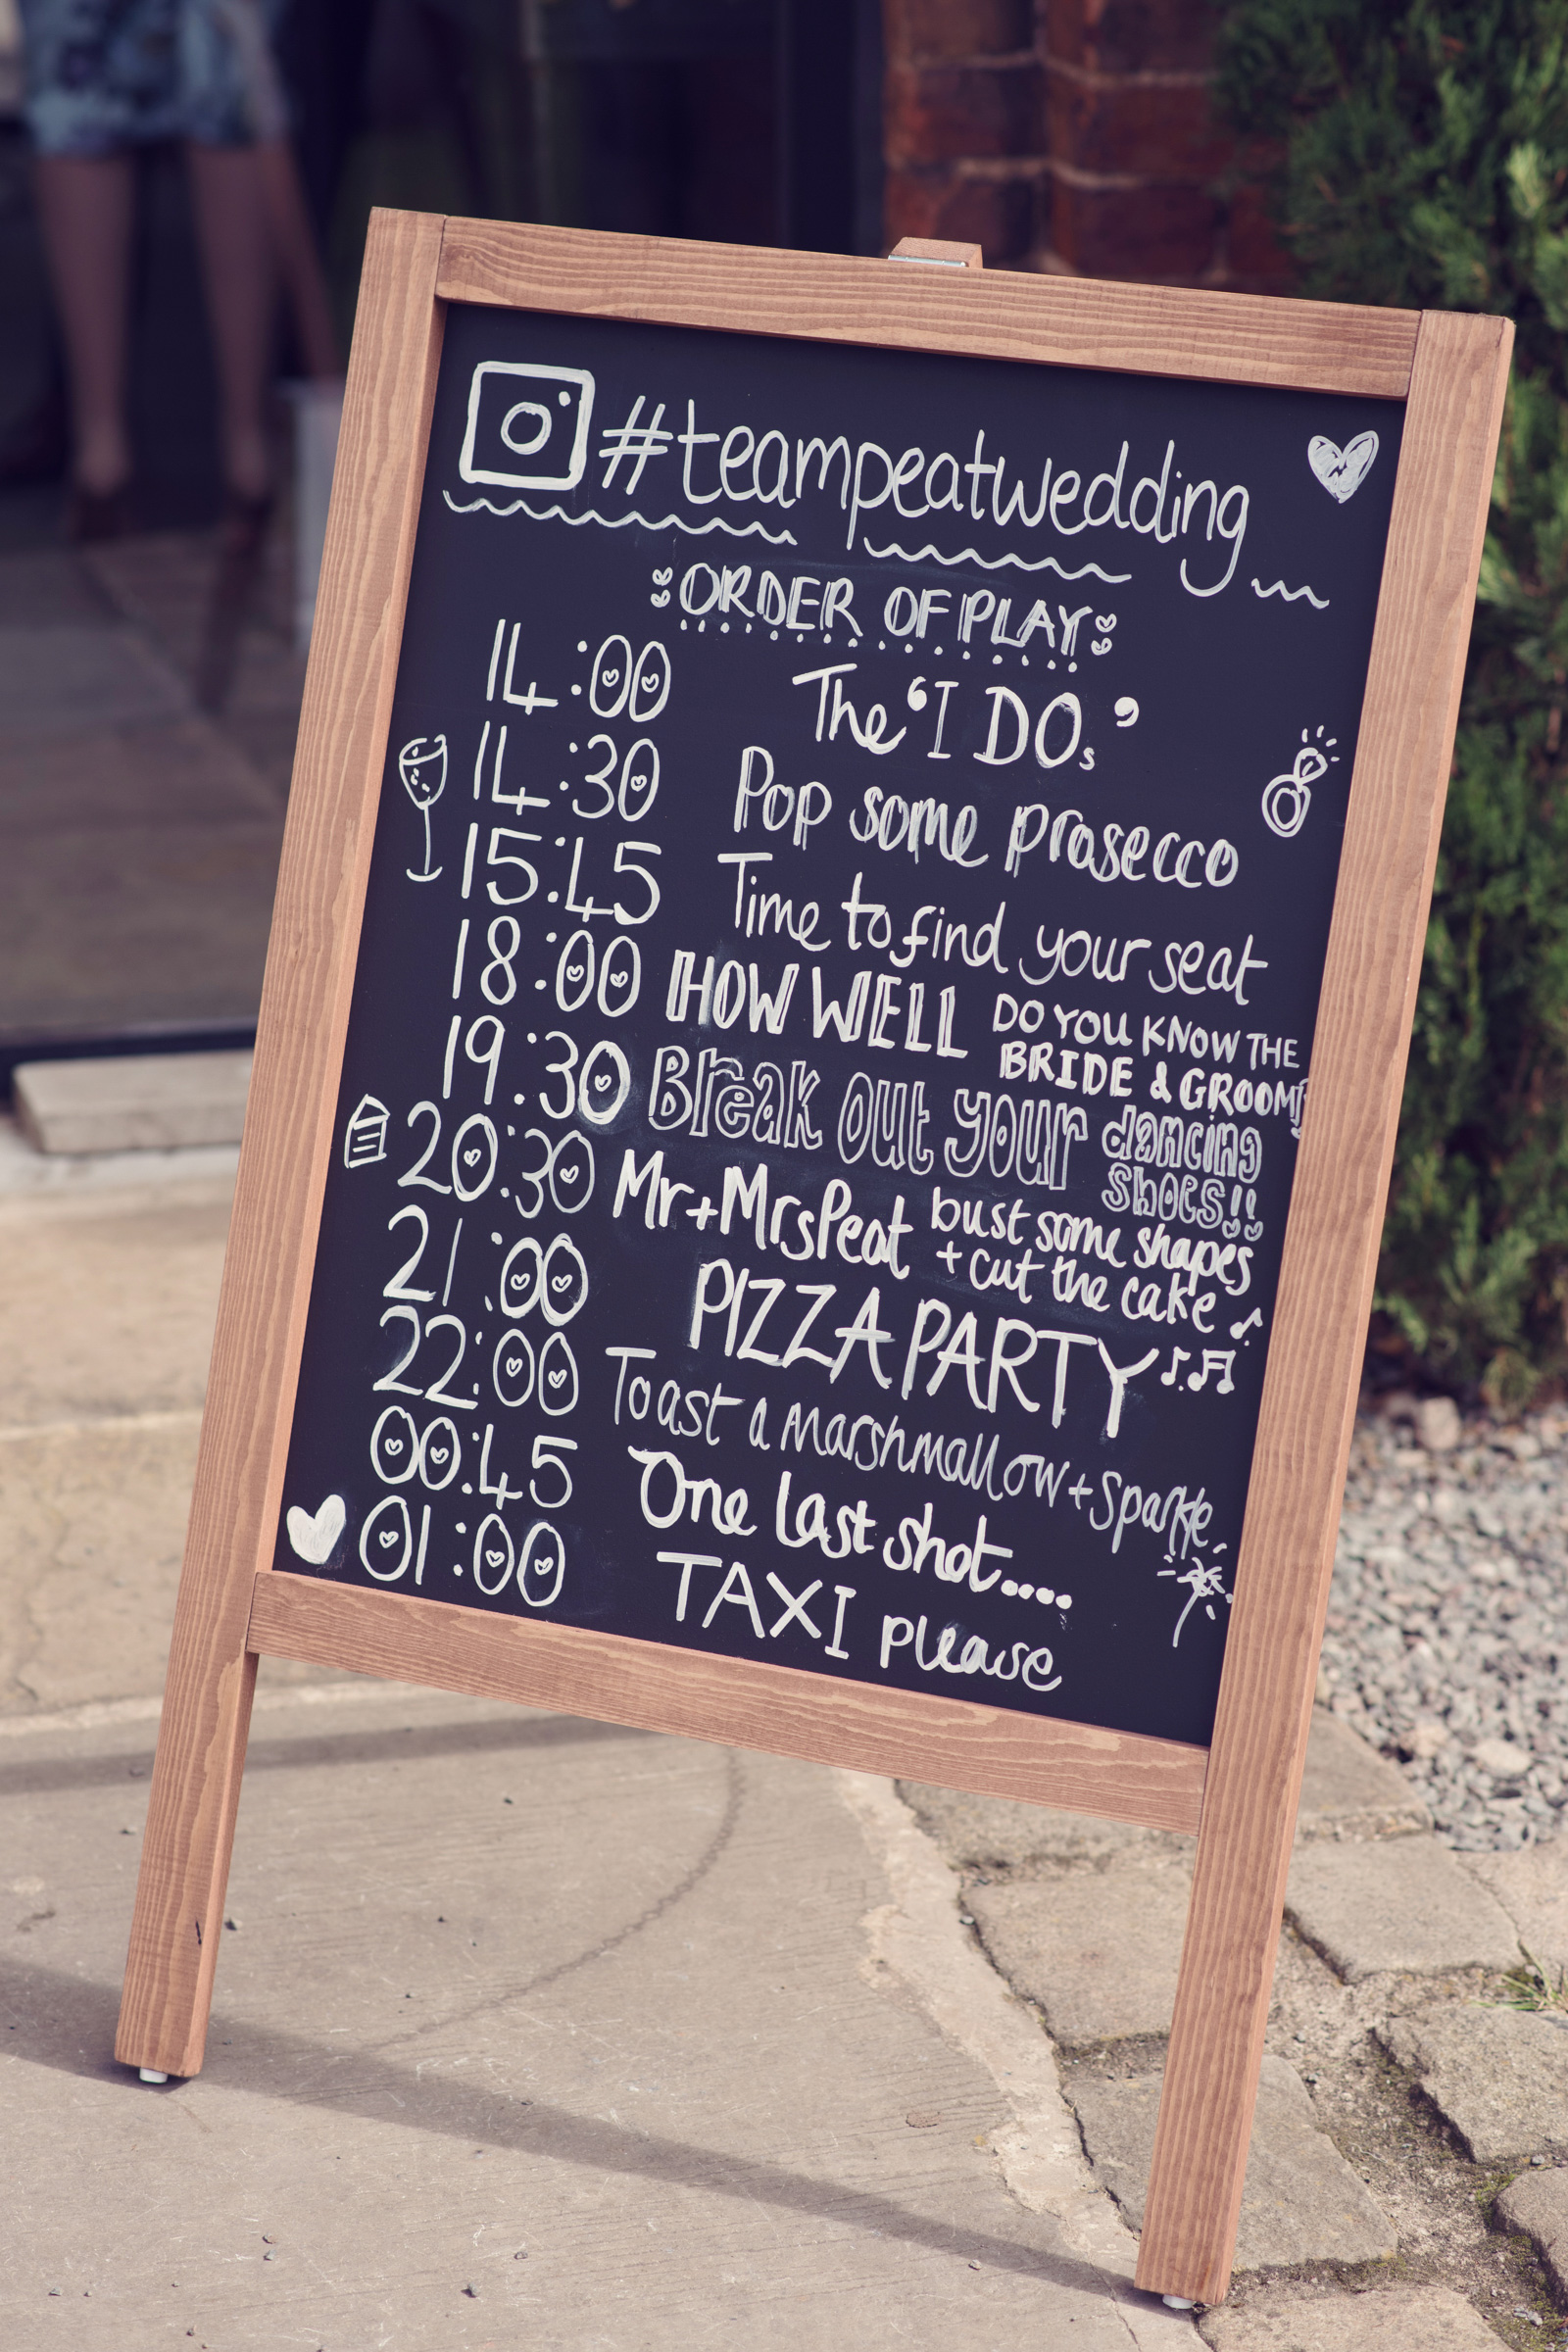 #teampeatwedding
ORDER OF PLAY
14:00 The 'I DOs'
14:30 Pop some prosecco
15:45 Time to find your seat
18:00 HOW WELL DO YOU KNOW THE
BRIDE & GROOM?
19:30 Break out your dancing
shoes!!
20:30 Mr+Mrs Peat bust some shapes
+ cut the cake
21:00 PIZZA PARTY
22:00 Toast a marshmallow + sparkle
00:45 One last shot....
01:00 TAXI please